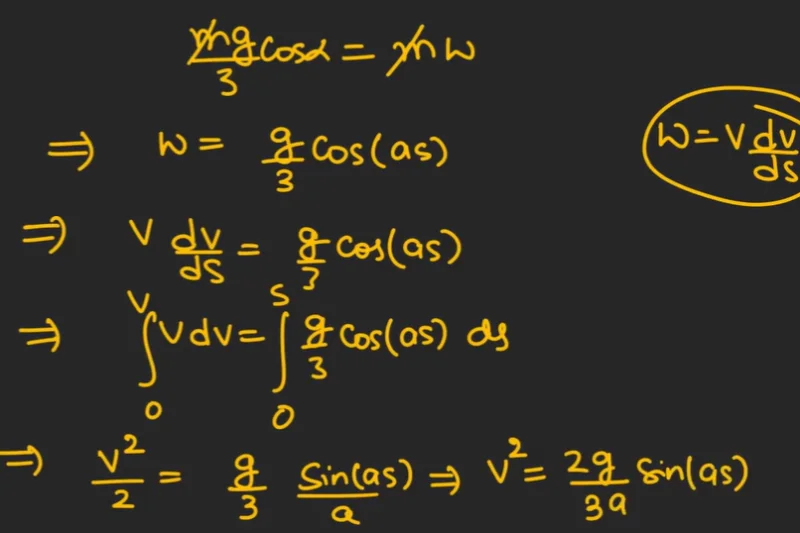 mg/3 cosα = mw
⇒ w = g/3 cos(as)
w = v dv/ds
⇒ v dv/ds = g/3 cos(as)
⇒ ∫₀ᵛ v dv = ∫₀ˢ g/3 cos(as) ds
⇒ v²/2 = g/3 sin(as)/a ⇒ v² = 2g/3a sin(as)